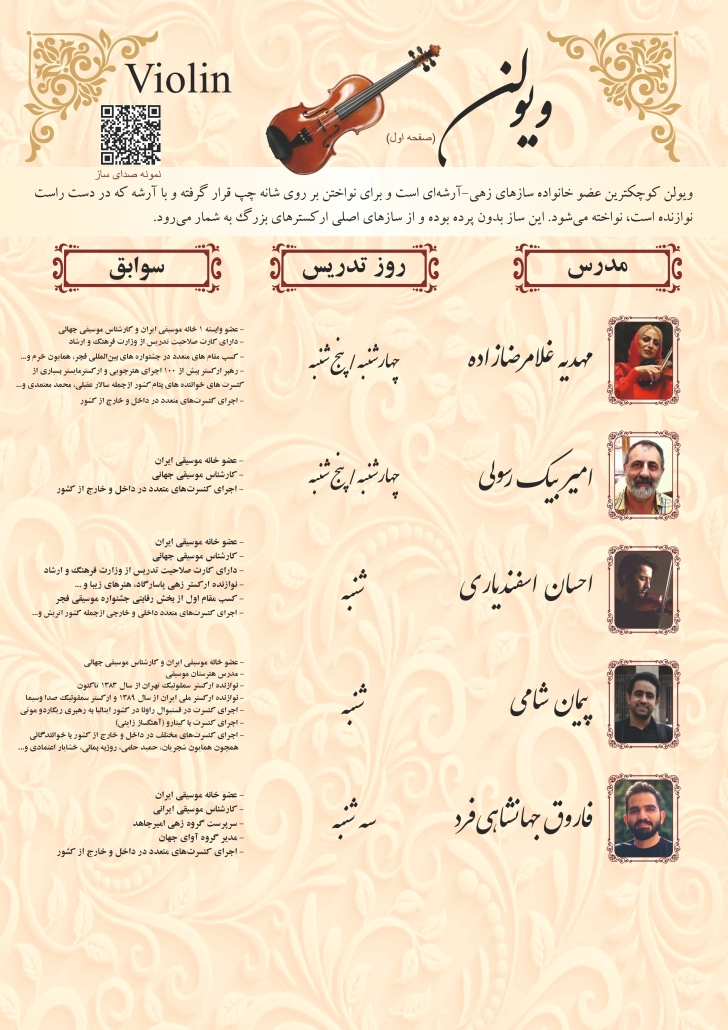 ویولن
(صفحه اول)
Violin
نمونه صدای ساز
ویولن کوچکترین عضو خانواده سازهای زهی-آرشه‌ای است و برای نواختن بر روی شانه چپ قرار گرفته و با آرشه که در دست راست
نوازنده است، نواخته می‌شود. این ساز بدون پرده بوده و از سازهای اصلی ارکسترهای بزرگ به شمار می‌رود.
مدرس
روز تدریس
سوابق
مهدیه غلامرضازاده
چهارشنبه / پنج شنبه
- عضو وابسته ۱ خانه موسیقی ایران و کارشناس موسیقی جهانی
- دارای کارت صلاحیت تدریس از وزارت فرهنگ و ارشاد
- کسب مقام های متعدد در جشنواره های بین‌المللی فجر، همایون خرم و...
- رهبر ارکستر بیش از ۱۰۰ اجرای هنرجویی و ارکسترمایستر بسیاری از
کنسرت های خواننده های بنام کشور ازجمله سالار عقیلی، محمد معتمدی و...
- اجرای کنسرت‌های متعدد در داخل و خارج از کشور
امیر بیک رسولی
چهارشنبه / پنج شنبه
- عضو خانه موسیقی ایران
- کارشناس موسیقی جهانی
- اجرای کنسرت‌های متعدد در داخل و خارج از کشور
احسان اسفندیاری
شنبه
- عضو خانه موسیقی ایران
- کارشناس موسیقی جهانی
- دارای کارت صلاحیت تدریس از وزارت فرهنگ و ارشاد
- نوازنده ارکستر زهی پاسارگاد، هنرهای زیبا و ...
- کسب مقام اول از بخش رقابتی جشنواره موسیقی فجر
- اجرای کنسرت‌های متعدد داخلی و خارجی ازجمله کشور اتریش و...
پیمان شامی
شنبه
- عضو خانه موسیقی ایران و کارشناس موسیقی جهانی
- مدرس هنرستان موسیقی
- نوازنده ارکستر سمفونیک تهران از سال ۱۳۸۳ تاکنون
- نوازنده ارکستر ملی ایران از سال ۱۳۸۹ و ارکستر سمفونیک صدا وسیما
- اجرای کنسرت در فستیوال راونا در کشور ایتالیا به رهبری ریکاردو موتی
- اجرای کنسرت با کیتارو (آهنگساز ژاپنی)
- اجرای کنسرت‌های مختلف در داخل و خارج از کشور با خوانندگانی
همچون همایون شجریان، حمید حامی، روزبه نعمت‌الهی، خشایار اعتمادی و...
فاروق جهانشاهی فرد
سه شنبه
- عضو خانه موسیقی ایران
- کارشناس موسیقی ایرانی
- سرپرست گروه زهی امیرجاهد
- مدیر گروه آوای جهان
- اجرای کنسرت‌های متعدد در داخل و خارج از کشور